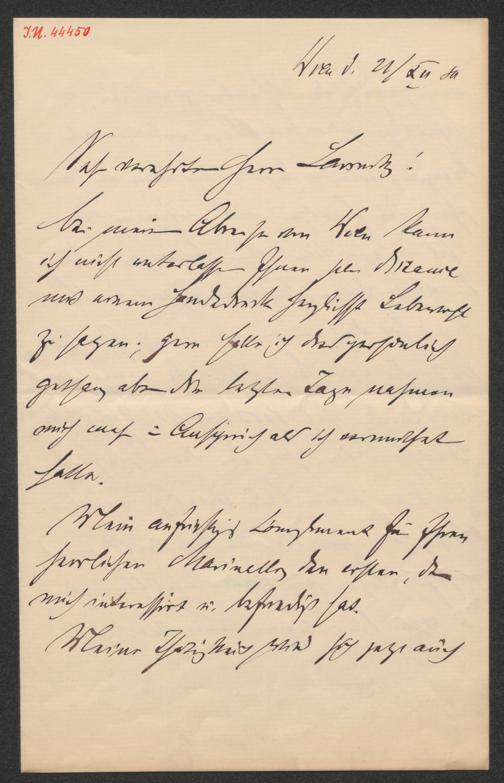 I.N. 44450
Wien d. 21/XII 80
Sehr verehrter Herr Lewinsky!
Bei meiner Abreise von Wien kann
ich nicht unterlassen Ihnen per distance
mit einem Händedruck herzlichst Lebewohl
zu sagen; gern hätte ich dies persönlich
gethan, aber die letzten Tage nahmen
mich mehr in Anspruch als ich vermuthet
hatte.
Mein aufrichtiges Compliment für Ihren
herrlichen Marinelli, den ersten, der
mich interessirt u. befriedigt hat.
Meine Thätigkeit wird sich jetzt auch